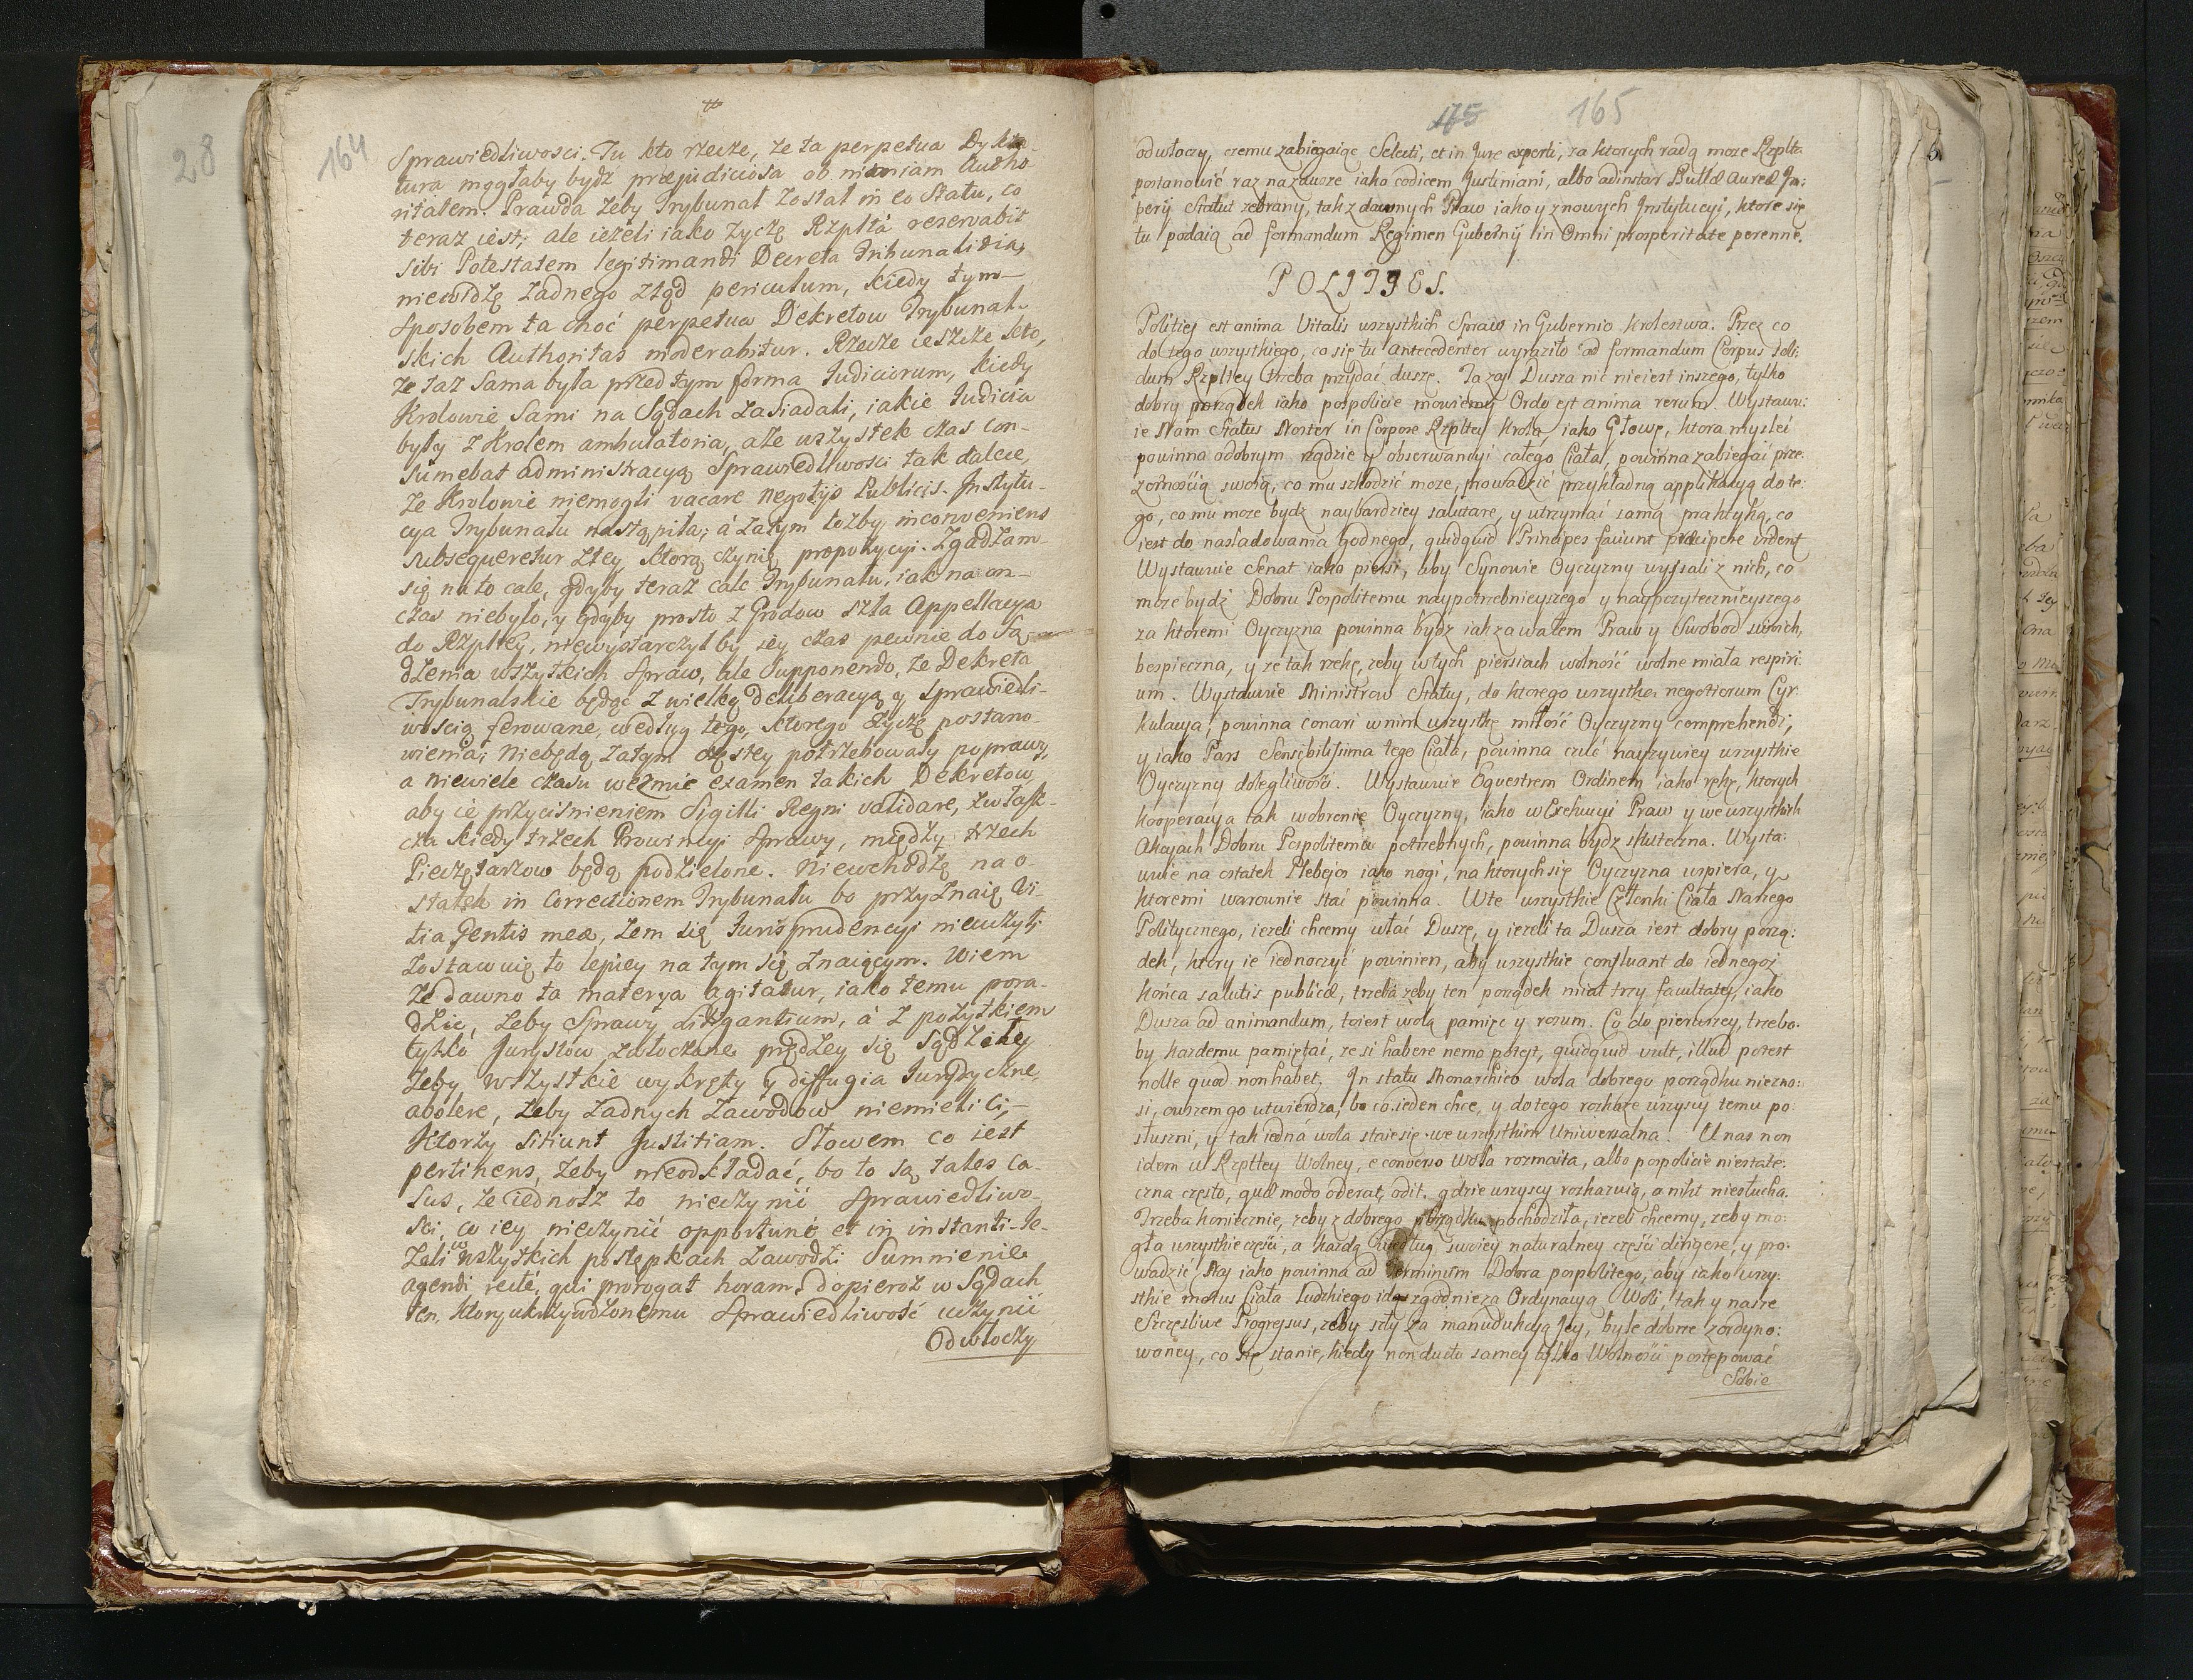 28
164
Sprawiedliwosci. Tu kto rzecze, że ta perpetua Dykta-
tura mogłaby bydź præjudiciosa ob nimiam Autho
ritatem. Prawda żeby Trybunał został in eo Statu, co
teraz iest; ale ieżeli iako życzę Rzpltá reservabit
sibi Potestatem legitimandi Decreta Tribunalitia,
niewidzę żadnego ztąd periculum, kiedy tym
Sposobem ta choć perpetua Dekretow Trybunal-
skich Authoritas moderabitur. Rzecze ieszcze kto,
że taż Sama była przed tym forma Iudiciorum, kiedy
Krolowie Sami na Sądach zasiadali, iakie Iudicia
były z Krolem ambulatoria, ale wszystek czas con-
sumebat administracyą Sprawiedliwosci tak dalece,
że Krolowie niemogli vacare negotijs Publicis. Instytu-
cya Trybunału nastąpiła; á zatym tożby inconveniens
subsequeretur z tey ktorą czynię propozycyi. Zgadzam
się na to cale, gdyby teraz cale Trybunału, iak na on-
czas niebyło, y gdyby prosto z Grodow szła Appellacya
do Rzpltey, niewystarczył by iey czas pewnie do Są-
dzenia wszytkich Spraw, ale Supponendo, że Dekreta
Trybunalskie będąc z wielką deliberacyą y sprawiedli-
woscią ferowane, według tego, ktorego życzę postano-
wienia; Niebędą zatym częstey potrzebowały poprawy,
a niewiele czasu weźmie examen takich Dekretow,
aby ie przyciśnieniem Sigilli Regni validare, zwłasz-
cza kiedy trzech Prowincyi sprawy, między trzech
Pieczętarzow będą podzielone. Niewchodzę na o-
statek in Correctionem Trybunału bo przyznaię Vi-
tia Gentis meæ, żem się Iurisprudencyi nieuczył;
zostawuię to lepiey na tym się znaiącym. Wiem
że dawno ta materya agitatur, iako temu pora-
dzic, żeby Sprawy Litigantium, á z pożytkiem
tylko Jurystow zwłoczone prędzey się sądziły
żeby wszystkie wykręty y diffugia Iurydyczne,
abolere, żeby żadnych zawodow niemieli ci,
Ktorzy sitiunt Justitiam. Słowem co iest
pertinens, żeby nieodkładać, bo to są tales ca-
sus, że iednosz to nieczynić Sprawiedliwo-
ści, co iey nieczynić opportuné et in instanti. Je-
żeli w wszytkich postępkach zawodzi Sumnienie
agendi recté, qui prorogat horam, dopieroż w Sądach
ten, ktory ukrzywdzonemu Sprawiedliwość uczynić
Odwłoczy
175 165
odwłoczy, czemu zabiegaiąc Selecti, et in Jure experti, za ktorych radą może Rzplta
postanowić raz na zawsze iako codicem Justiniani, albo adinstar Bullæ Aureæ Im:
perij Statut zebrany, tak z dawnych Praw iako y z nowych Instytucyi, ktore się
tu podaią ad formandum Regimen Gubernij in Omni prosperitate perenne.
POLITIES.
Polities est anima Vitalis wszystkich Spraw in Gubernio Krolestwa. Przez co
do tego wszystkiego, co się tu antecedenter wyraziło ad formandum Corpus soli:
dum Rzpltey trzeba przydać duszę. Ta zaś Dusza nic nieiest inszego, tylko
dobry porządek iako pospolicie mowiemy Ordo est anima rerum. Wystawu:
ie Nam Status Noster in Corpore Rzpltey Krola, iako Głowę, ktora myslić
powinna o dobrym rządzie y obserwancyi całego Ciała, powinna zabiegać prze:
zornością swoią, co mu szkodzić może, prowadzić przykładną applikacyą do te:
go, co mu może bydz naybardziey salutare, y utrzymać samą praktyką, co
iest do nasladowania godnego, quidquid Principes faciunt præcipere videnť
Wystawuie Senat iako piersi, aby Synowie Oyczyzny wyssali z nich, co
może bydź Dobru Pospolitemu naypotrzebnieyszego y naypożytecznieyszego
za ktoremi Oyczyzna powinna bydz iak za wałem Praw y Swobod swoich,
bespieczna, y że tak rzekę, żeby w tych piersiach wolność wolne miała respiri:
um. Wystawuie Ministrow Statûs, do ktorego wszystka negotiorum Cyr:
kulacya, powinna conari w nim wszystkę miłość Oyczyzny comprehendi,
y iako Pars Sensibilissima tego Ciała, powinna czuć nayżywiey wszystkie
Oyczyzny dolegliwości. Wystawuie Equestrem Ordinem iako ręke, ktorych
kooperacya tak w obronie Oyczyzny, iako w Exekucyi Praw y we wszystkich
Akcyach Dobru Pospolitemu potrzebnych, powinna bydz skuteczna. Wysta:
wuie na ostatek Plebejos iako nogi, na ktorych się Oyczyzna wspiera, y
ktoremi warownie stać powinna. W te wszystkie Członki Ciała Naszego
Politycznego, ieżeli chcemy wlać Duszę, y ieżeli ta Dusza iest dobry porzą:
dek, ktory ie iednoczyć powinien, aby wszystkie confluant do iednego
końca salutis publicæ, trzeba żeby ten porządek miał trzy facultates, iako
Dusza ad animandum, to iest wolą pamięc y rozum. Co do pierwszey, trzebo:
by każdemu pamiętać, że si habere nemo potest, quidquid vult, illud potest
nolle quod non habet. In statu Monarchico wola dobrego porządku niezno:
si, owszem go utwierdza, bo co ieden chce, y do tego rozkaże wszyscy temu po:
słuszni, y tak iedna wola staie się we wszystkim Uniwersalna. U nas non
idem w Rzpltey Wolney, e converso Wola rozmaita, albo pospolicie niestate:
czna często, quæ modo oderat, odit. gdzie wszyscy rozkazuią, a nikt niesłucha.
Trzeba koniecznie, żeby z dobrego porządku pochodziła, ieżeli chcemy, żeby mo:
gła wszystkie części, a każdą według swoiey naturalney części dirigere, y pro:
wadzić Nas iako powinna ad terminum Dobra pospolitego, aby iako wszy:
stkie motus Ciała ludzkiego idą zgodnie za Ordynacyą Woli, tak y nasze
Szczęśliwe Progressus, żeby szły za manudukcyą Jey, byle dobrze zordyno:
waney, co się stanie, kiedy non ductu samey tylko Wolności postępować
Sobie